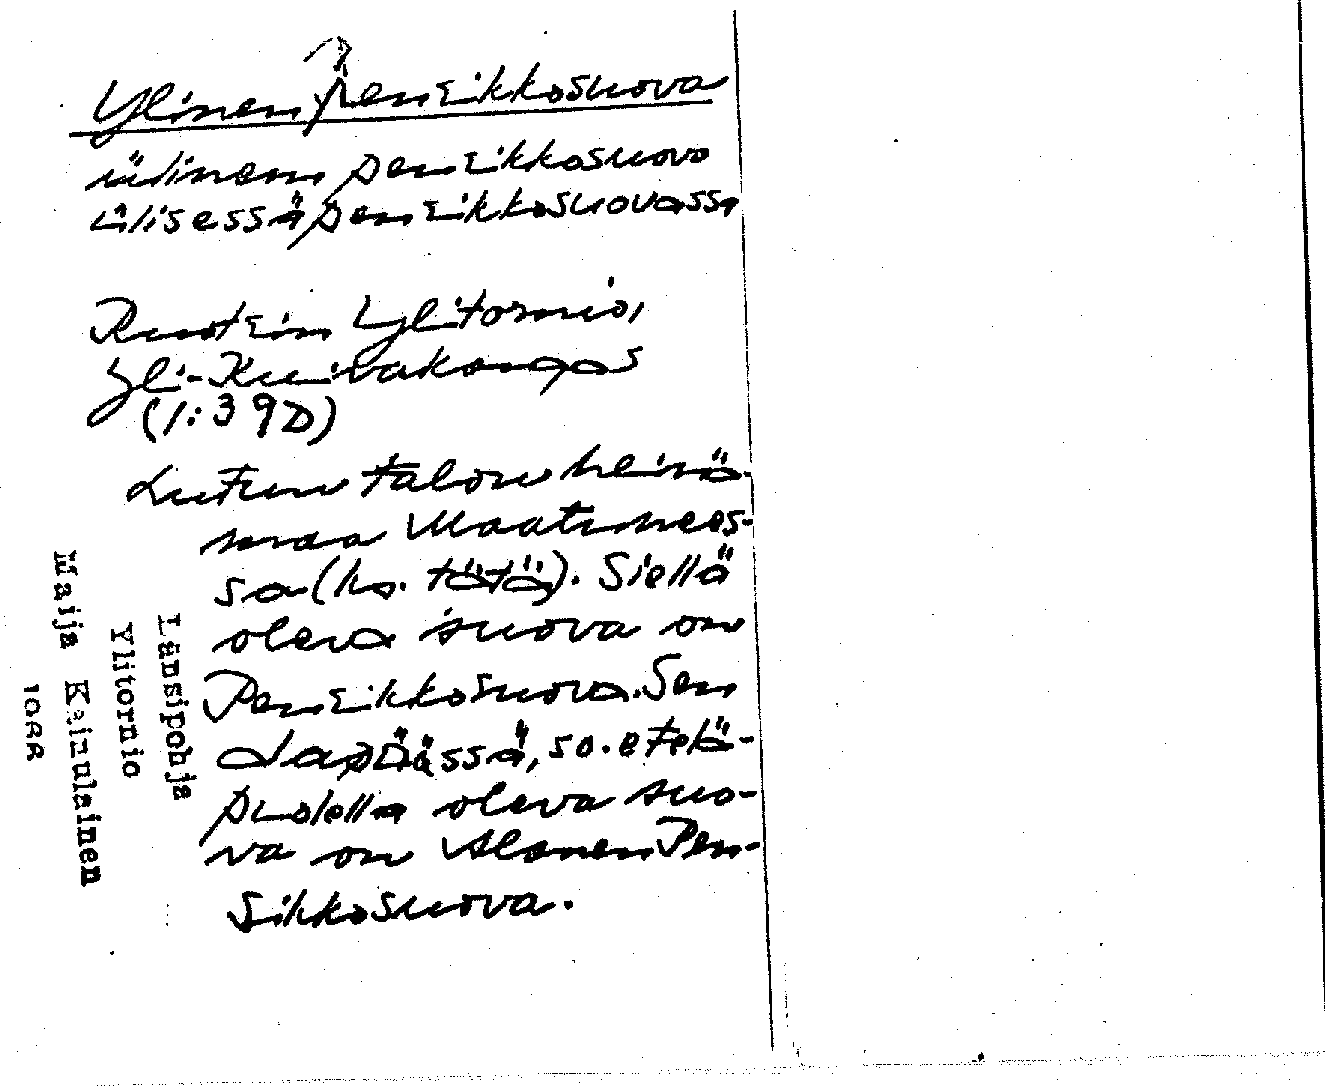 Ylinen Pensikkosuova
ülinen pensikkosuova
ülisessä pensikkosuovassa
Ruotsin Ylitornio,
Yli-Kuivakangas
(1:39D)
Lutun talon heinä-
maa Maatunees-
sa (ks. tätä). Siellä
oleva suova on
Pensikkosuova. Sen
alapäässä, so. etelä-
puolella oleva suo-
va on Alanen Pen-
sikkosuova.
Länsipohja
Ylitornio
Maija Kainulainen